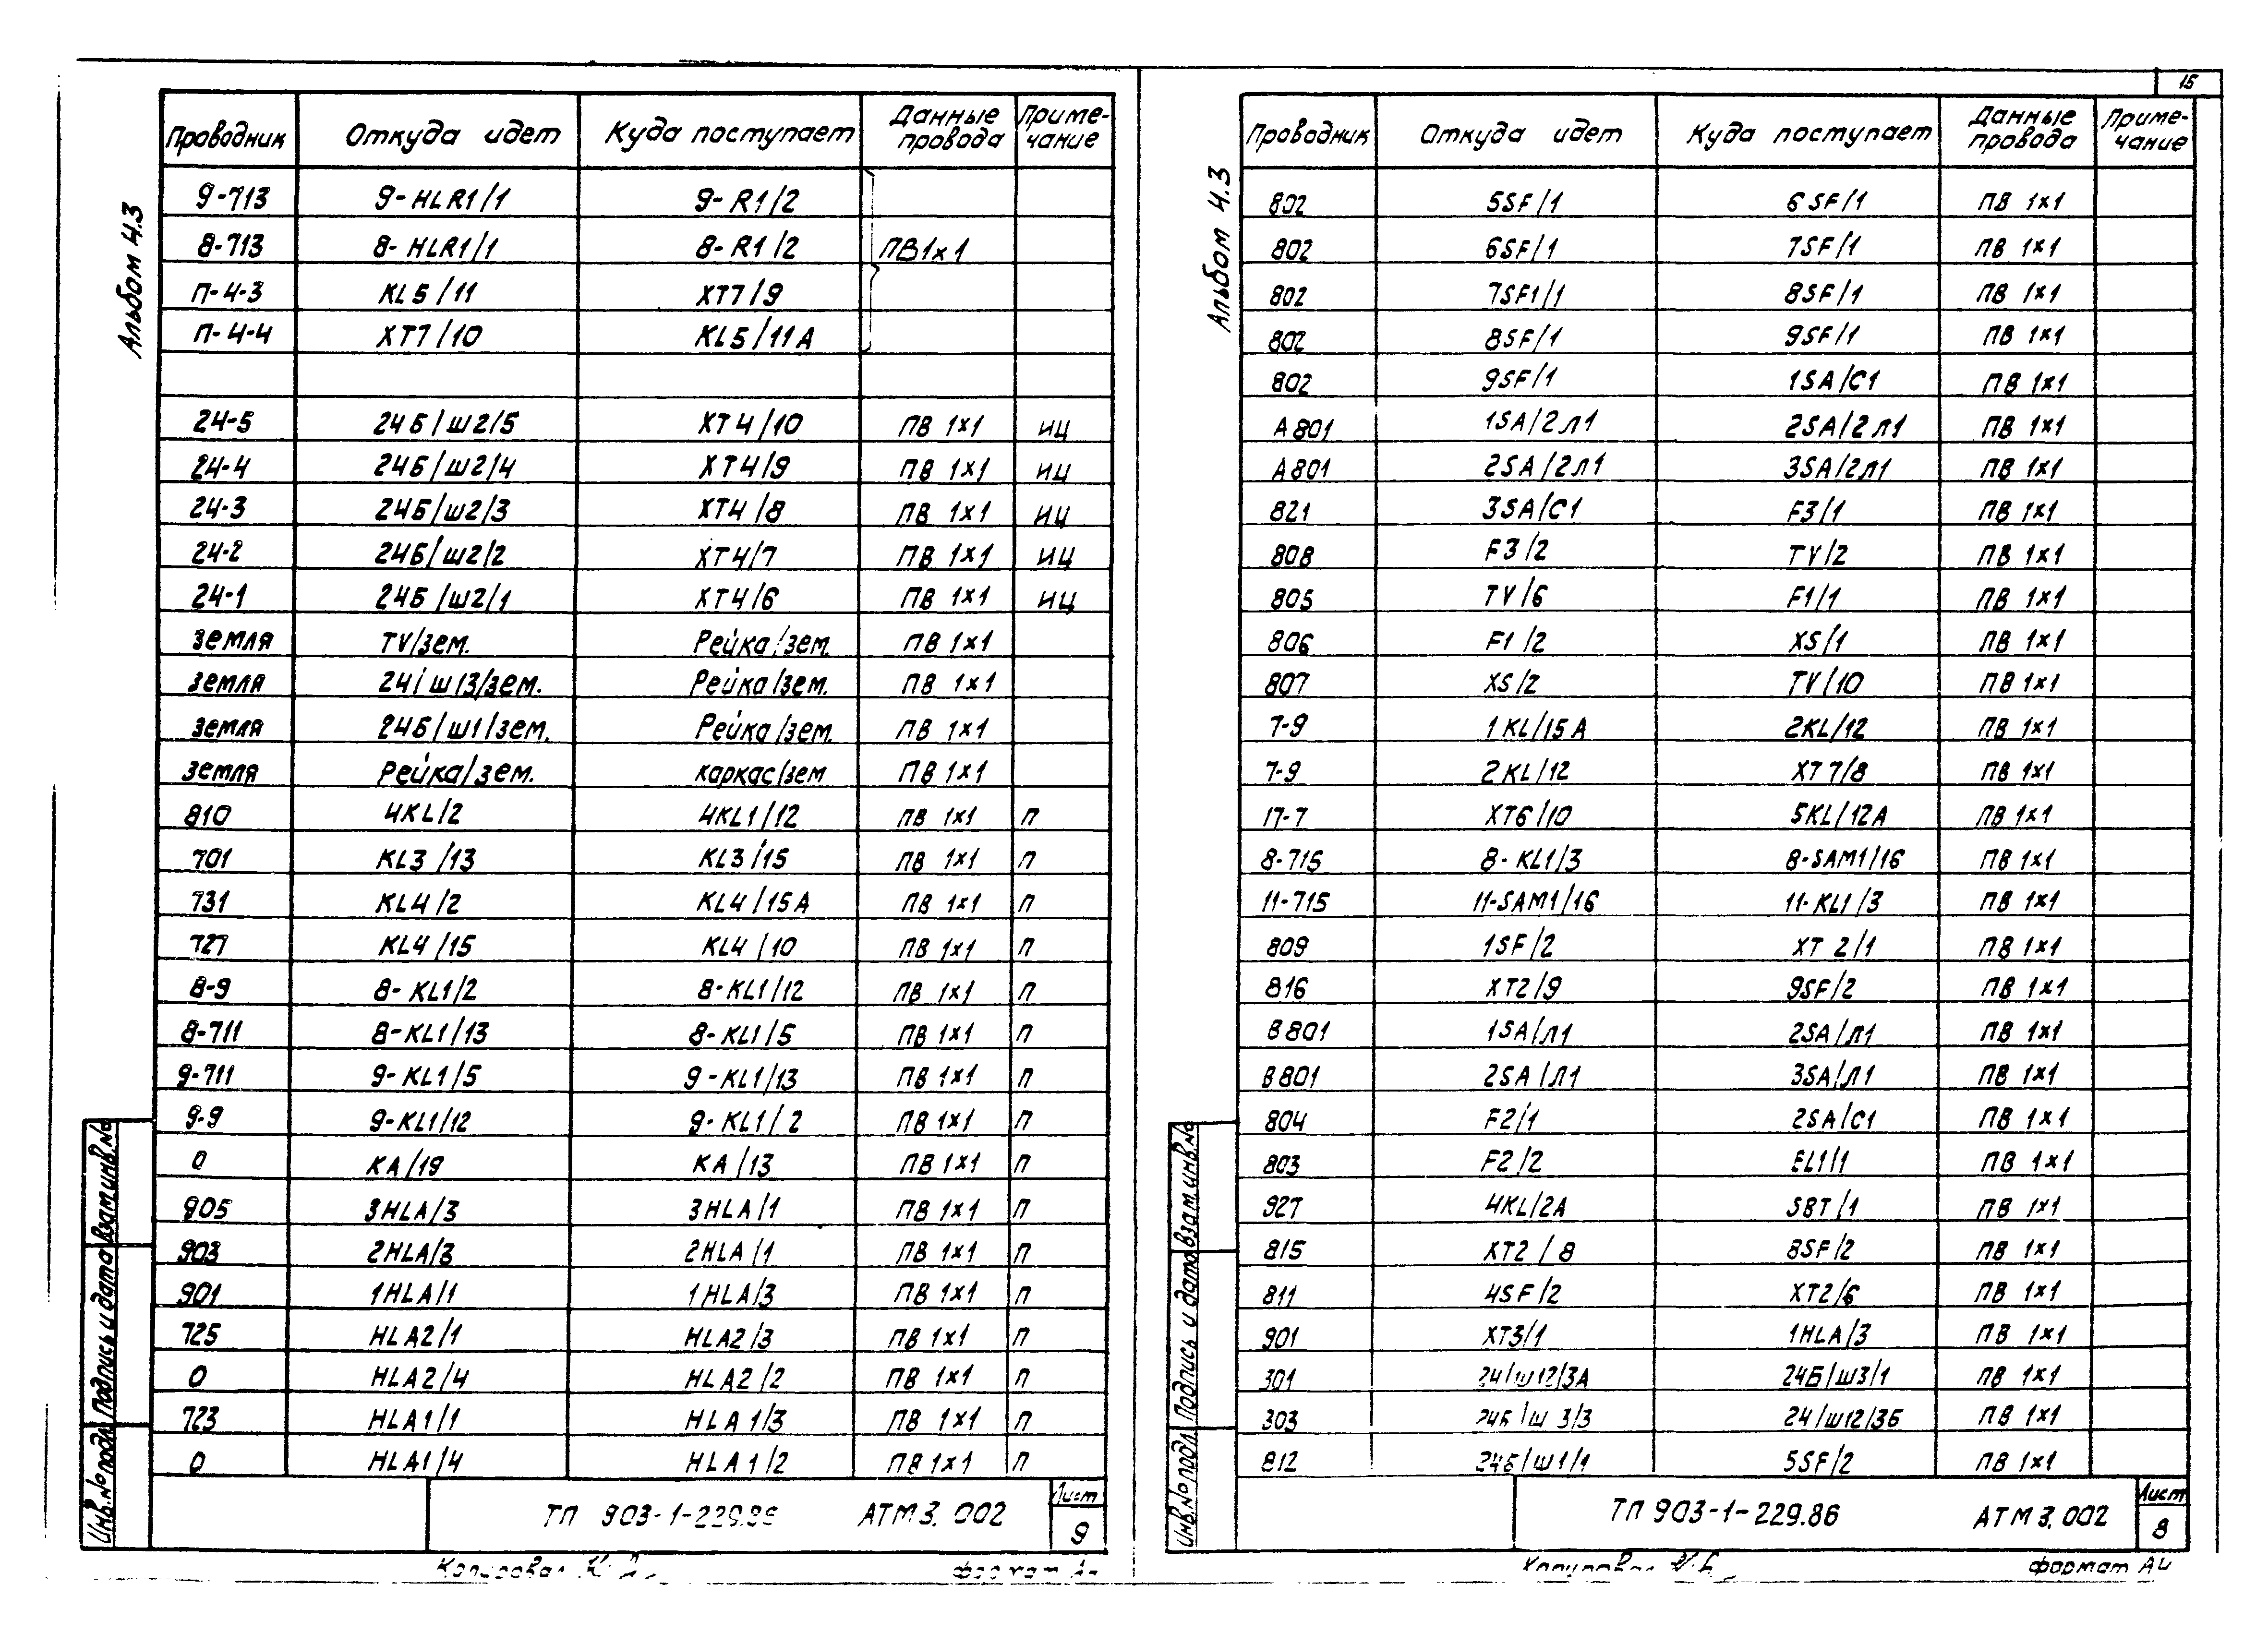 15
Альбом 4.3
Проводник Откуда идет Куда поступает Данные провода Примечание
9-713 9-HLR1/1 9-R1/2
8-713 8-HLR1/1 8-R1/2 ПВ1х1
П-4-3 KL5/11 XT7/9
П-4-4 XT7/10 KL5/11А
24-5 24Б/Ш2/5 XT4/10 ПВ 1х1 ИЦ
24-4 24Б/Ш2/4 XT4/9 ПВ 1х1 ИЦ
24-3 24Б/Ш2/3 XT4/8 ПВ 1х1 ИЦ
24-2 24Б/Ш2/2 XT4/7 ПВ 1х1 ИЦ
24-1 24Б/Ш2/1 XT4/6 ПВ 1х1 ИЦ
земля TV/зем. Рейка/зем. ПВ 1х1
земля 24/Ш13/зем. Рейка/зем. ПВ 1х1
земля 24Б/Ш1/зем. Рейка/зем. ПВ 1х1
земля Рейка/зем. каркас/зем ПВ 1х1
810 4KL/2 4KL1/12 ПВ 1х1 П
701 KL3/13 KL3/15 ПВ 1х1 П
731 KL4/2 KL4/15А ПВ 1х1 П
727 KL4/15 KL4/10 ПВ 1х1 П
8-9 8-KL1/2 8-KL1/12 ПВ 1х1 П
8-711 8-KL1/13 8-KL1/5 ПВ 1х1 П
9-711 9-KL1/5 9-KL1/13 ПВ 1х1 П
9-9 9-KL1/12 9-KL1/2 ПВ 1х1 П
0 KA/19 KA/13 ПВ 1х1 П
905 3HLA/3 3HLA/1 ПВ 1х1 П
903 2HLA/3 2HLA/1 ПВ 1х1 П
901 1HLA/1 1HLA/3 ПВ 1х1 П
725 HLA2/1 HLA2/3 ПВ 1х1 П
0 HLA2/4 HLA2/2 ПВ 1х1 П
723 HLA1/1 HLA1/3 ПВ 1х1 П
0 HLA1/4 HLA1/2 ПВ 1х1 П
Инв.№ подл. Подпись и дата Взам.инв.№
ТП 903-1-229.86 АТМ3.002 Лист 9
Копировал формат
Альбом 4.3
Проводник Откуда идет Куда поступает Данные провода Примечание
802 5SF/1 6SF/1 ПВ 1х1
802 6SF/1 7SF/1 ПВ 1х1
802 7SF1/1 8SF/1 ПВ 1х1
802 8SF/1 9SF/1 ПВ 1х1
802 9SF/1 1SA/C1 ПВ 1х1
А801 1SA/2Л1 2SA/2Л1 ПВ 1х1
А801 2SA/2Л1 3SA/2Л1 ПВ 1х1
821 3SA/C1 F3/1 ПВ 1х1
808 F3/2 TV/2 ПВ 1х1
805 TV/6 F1/1 ПВ 1х1
806 F1/2 XS/1 ПВ 1х1
807 XS/2 TV/10 ПВ 1х1
7-9 1KL/15А 2KL/12 ПВ 1х1
7-9 2KL/12 XT7/8 ПВ 1х1
17-7 XT6/10 5KL/12А ПВ 1х1
8-715 8-KL1/3 8-SAM1/16 ПВ 1х1
11-715 11-SAM1/16 11-KL1/3 ПВ 1х1
809 1SF/2 XT2/1 ПВ 1х1
816 XT2/9 9SF/2 ПВ 1х1
В801 1SA/Л1 2SA/Л1 ПВ 1х1
В801 2SA/Л1 3SA/Л1 ПВ 1х1
804 F2/1 2SA/C1 ПВ 1х1
803 F2/2 EL1/1 ПВ 1х1
927 4KL/2А SBT/1 ПВ 1х1
815 XT2/8 8SF/2 ПВ 1х1
811 4SF/2 XT2/6 ПВ 1х1
901 XT3/1 1HLA/3 ПВ 1х1
301 24/Ш12/3А 24Б/Ш3/1 ПВ 1х1
303 24Б/Ш3/3 24/Ш12/3Б ПВ 1х1
812 24Б/Ш1/1 5SF/2 ПВ 1х1
Инв.№ подл. Подпись и дата Взам.инв.№
ТП 903-1-229.86 АТМ3.002 Лист 8
Копировал формат А4